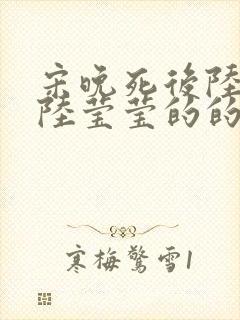 宋晚死後陸
陸瑩瑩的的
寒梅驚雪1